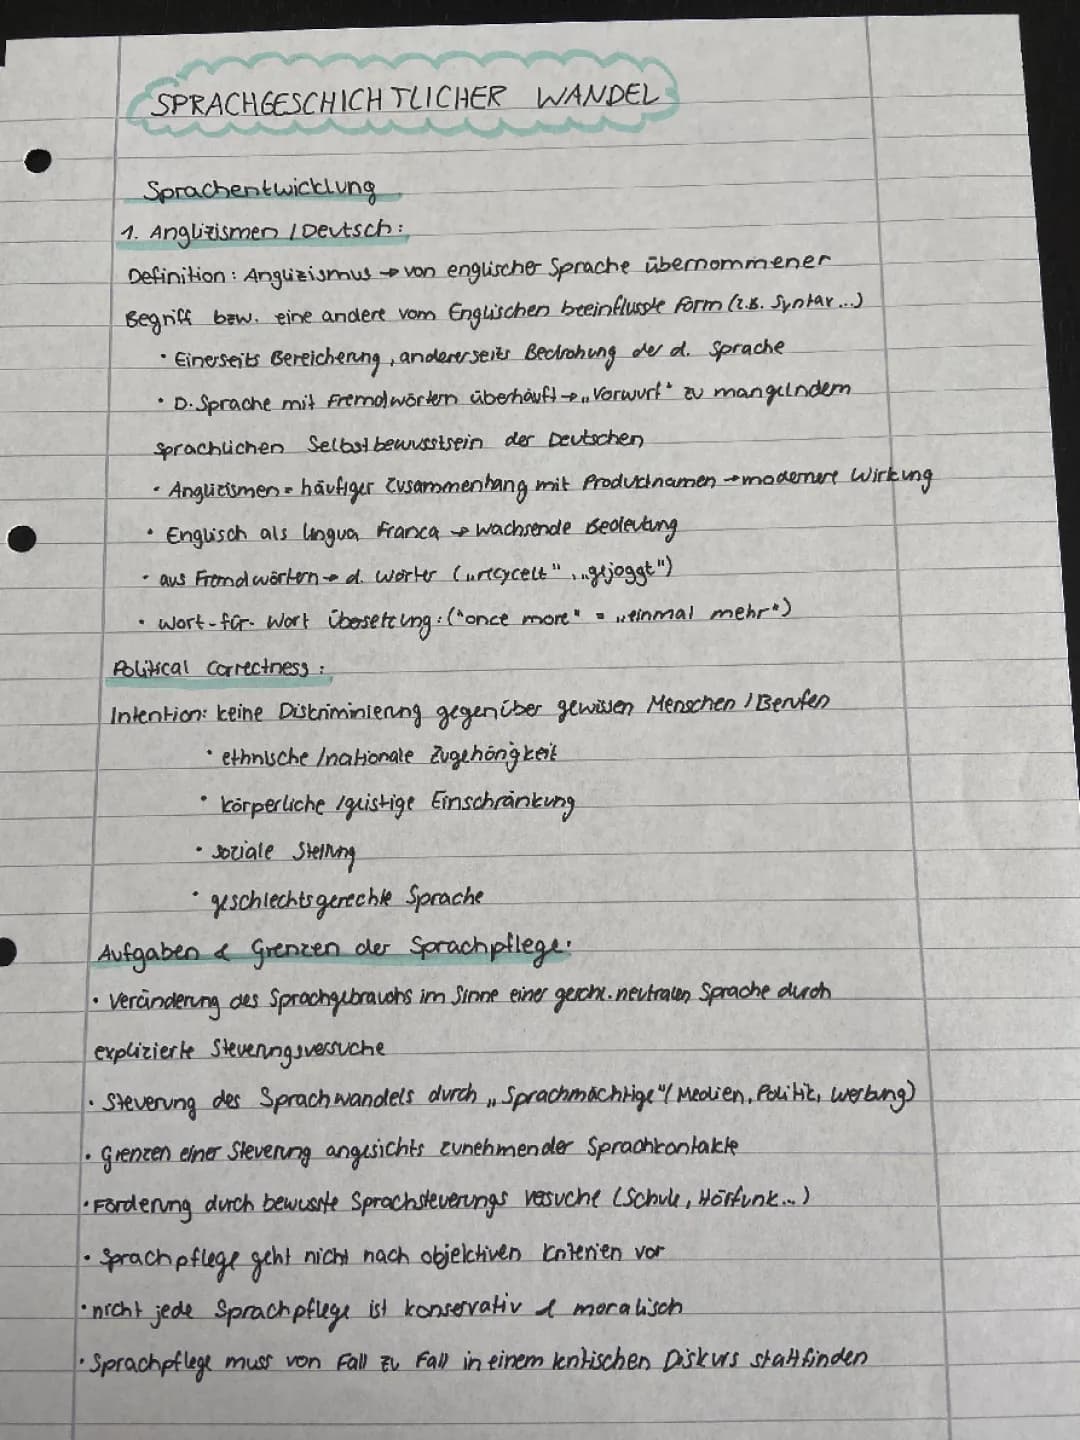 SPRACHGESCHICHTLICHER WANDEL
Sprachentwicklung
1. Anglizismen / Deutsch:
Definition: Anglizismus → von englischer Sprache übernommener
Begriff bzw. eine andere vom Englischen beeinflusste Form (z.B. Syntax...)
• Einerseits Bereicherung, andererseits Bedrohung der d. Sprache
• D. Sprache mit Fremdwörtern überhäuft → „Vorwurf" zu mangelndem
sprachlichen Selbstbewusstsein der Deutschen
• Anglizismen = häufiger Zusammenhang mit Produktnamen → modernere Wirkung
• Englisch als lingua franca → wachsende Bedeutung
• aus Fremdwörtern → d. Wörter („recycelt", „gejoggt")
• Wort-für-Wort Übersetzung: ("once more" = „einmal mehr")
Political Correctness:
Intention: keine Diskriminierung gegenüber gewissen Menschen / Berufen
• ethnische / nationale Zugehörigkeit
• körperliche / geistige Einschränkung
• soziale Stellung
• geschlechtsgerechte Sprache
Aufgaben & Grenzen der Sprachpflege:
• Veränderung des Sprachgebrauchs im Sinne einer geschl. neutralen Sprache durch
explizierte Steuerungsversuche
• Steuerung des Sprachwandels durch „Sprachmächtige" (Medien, Politik, Werbung)
• Grenzen einer Steuerung angesichts zunehmender Sprachkontakte
• Förderung durch bewusste Sprachsteuerungs vesuche (Schule, Hörfunk...)
• Sprachpflege geht nicht nach objektiven Kriterien vor
• nicht jede Sprachpflege ist konservativ & moralisch
• Sprachpflege muss von Fall zu Fall in einem kritischen Diskurs stattfinden